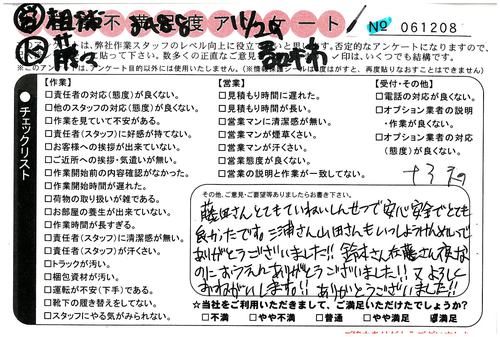 不 度 ア ケ ート
No 061208
は、弊社作業スタッフのレベル向上に役立て いと思い す。否定的なアンケートになりますので、
貼って下さい。数多くの正直なご意見 ノ印は、いくつでも結構です。
※このアンケートは、アンケート目的以外には使用いたしません。(※情報保護シール をはがすと、再度貼りなおすことはできません)
チェックリスト
【作業】
□責任者の対応(態度)が良くない。
□他のスタッフの対応(態度)が良くない。
□作業を見ていて不安がある。
□責任者(スタッフ)に好感が持てない。
□お客様への挨拶が出来ていない。
□ご近所への挨拶・気遣いが無い。
□作業開始前の内容確認がなかった。
□作業開始時間が遅れた。
□荷物の取り扱いが雑である。
□お部屋の養生が出来ていない。
□作業時間が長すぎる。
□責任者(スタッフ)に清潔感が無い。
□責任者(スタッフ)が汗くさい。
□トラックが汚い。
□梱包資材が汚い。
□運転が不安(下手)である。
□靴下の履き替えをしてない。
□スタッフにやる気がみられない。
【営業】
□見積もり時間に遅れた。
□見積もり時間が長い。
□営業マンに清潔感が無い。
□営業マンが煙草くさい。
□営業マンが汗くさい。
□営業態度が良くない。
□営業の説明と作業が一致してない。
【受付・その他】
□電話の対応が良くない。
□オプション業者の説明
・作業が良くない。
□オプション業者の対応
(態度)が良くない。
その他、ご意見・ご要望等ありましたらお書き下さい。
藤田さんとてもていねいしんせつで安心安全でとても
良かったです。三浦さん山田さんもいっしょうけんめいで
ありがとうございました!! 鈴木さん佐藤さん夜
のにおうえんありがとうございました!! 又よろしく
おねがいします!! ありがとうございました!
☆当社をご利用いただきまして、ご満足いただけたでしょうか?
□不満 □やや不満 □普通 □やや満足 ☑満足